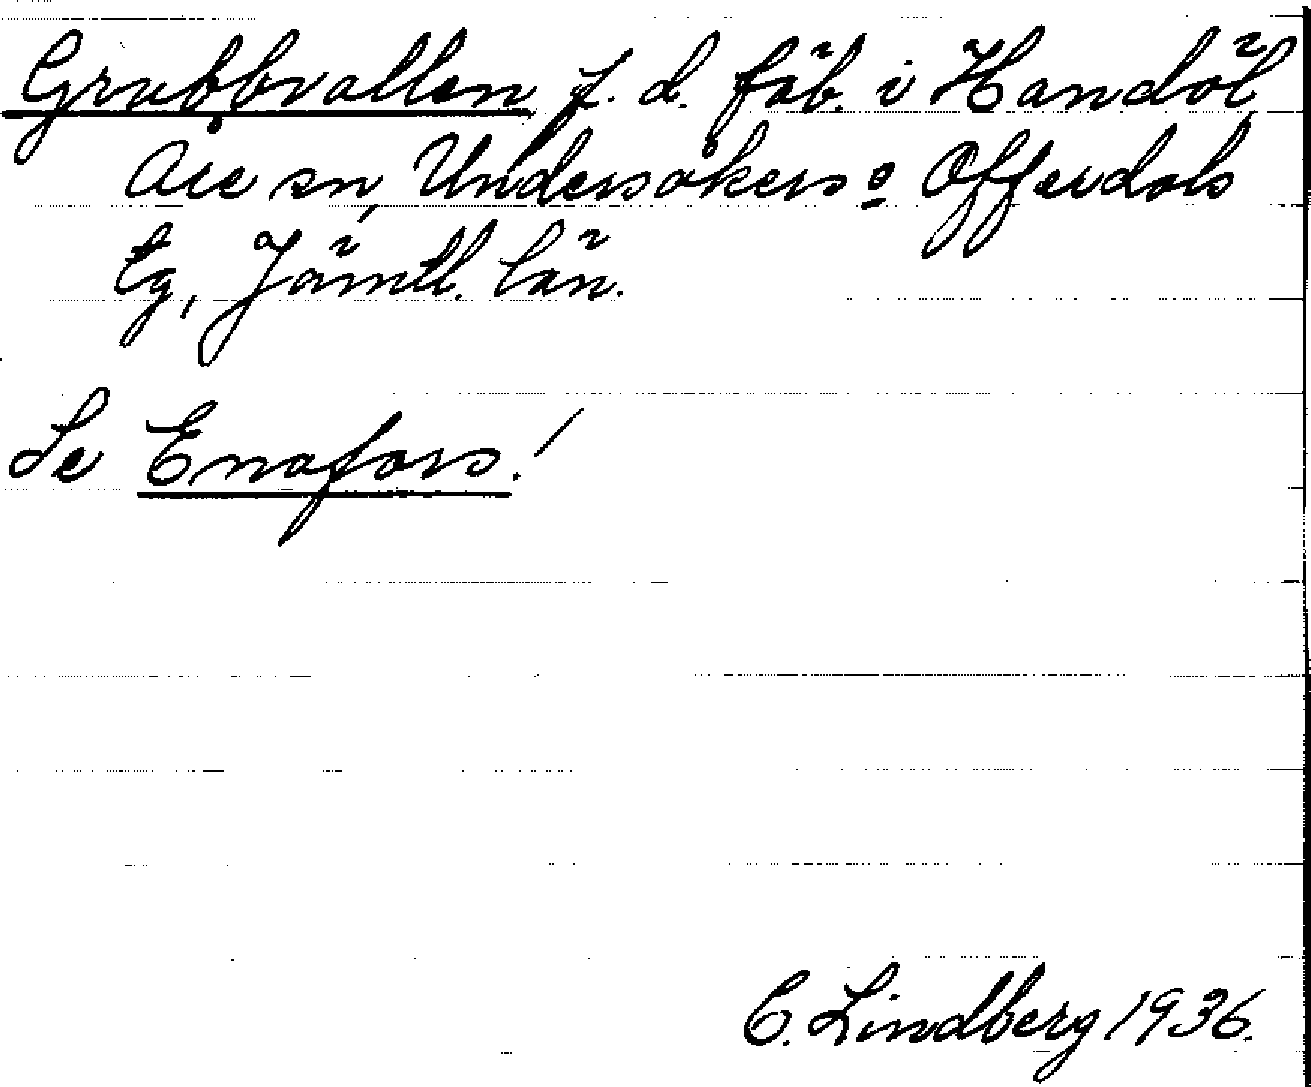 Grubbvallen f. d. fäb. i Handöl
Åre sn, Undersåkers o Offerdals
tg, Jämtl. län.
Se Enafors!
C. Lindberg 1936.